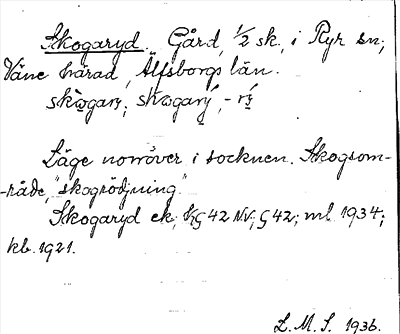 Skogaryd. Gård, 1/2 sk., i Ryr sn;
Väne härad, Älfsborgs län.
Läge norröver i socknen. Skogsom-
-råde, "skogrödjning."
Skogaryd ek; G 42 NV; G 42; ml. 1934;
kb. 1921.
L. M. S. 1936.